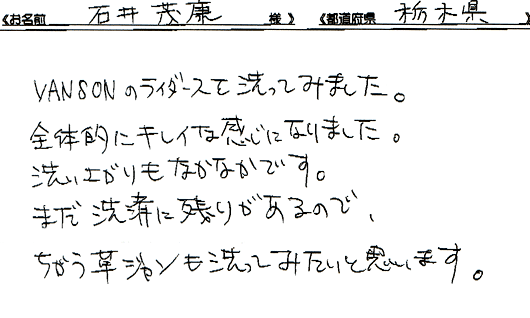 《お名前 石井茂康 様》 《都道府県 栃木県
VANSONのライダースを洗ってみました。
全体的にキレイな感じになりました。
洗い上がりもなかなかです。
まだ洗濟に残りがあるので、
ちがう革ジャンも洗ってみたいと思います。